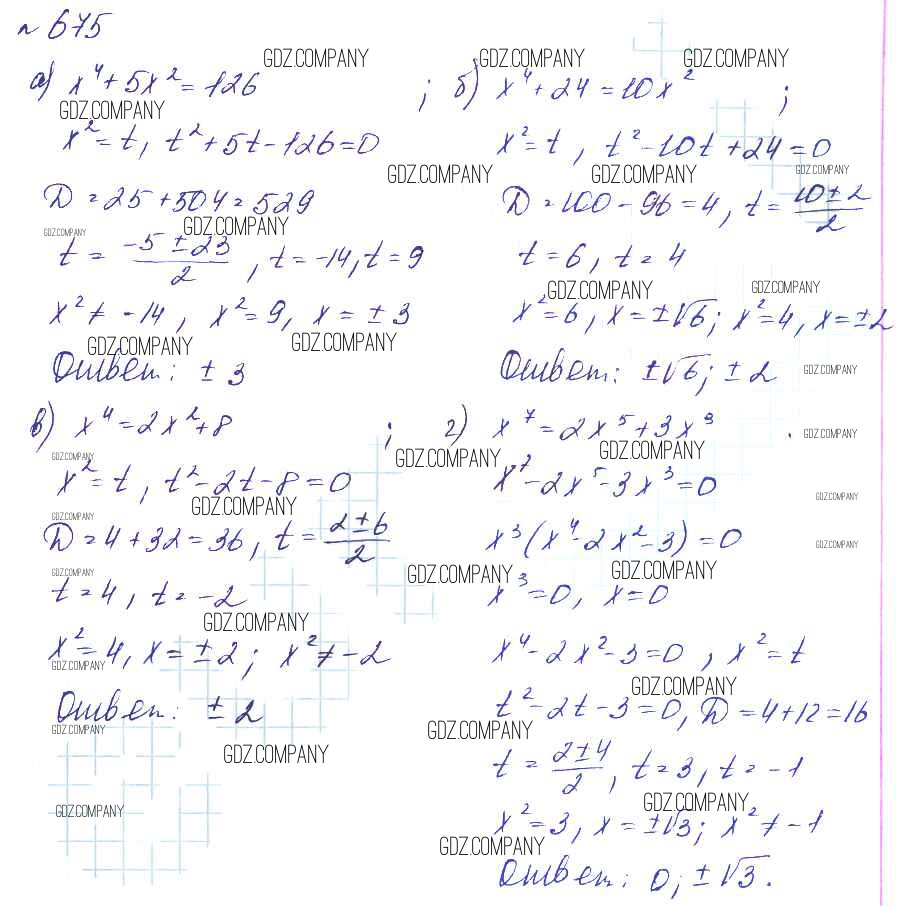 № 675
а) x⁴ + 5x² = 126 ;
x² = t, t² + 5t - 126 = 0
D = 25 + 504 = 529
t = (-5 ± 23)/2, t = -14, t = 9
x² ≠ -14, x² = 9, x = ± 3
Ответ: ± 3
б) x⁴ + 24 = 10x² ;
x² = t, t² - 10t + 24 = 0
D = 100 - 96 = 4, t = (10 ± 2)/2
t = 6, t = 4
x² = 6, x = ±√6; x² = 4, x = ± 2
Ответ: ±√6; ± 2
в) x⁴ = 2x² + 8 ;
x² = t, t² - 2t - 8 = 0
D = 4 + 32 = 36, t = (2 ± 6)/2
t = 4, t = -2
x² = 4, x = ± 2; x² ≠ -2
Ответ: ± 2
г) x⁷ = 2x⁵ + 3x³ .
x⁷ - 2x⁵ - 3x³ = 0
x³(x⁴ - 2x² - 3) = 0
x³ = 0, x = 0
x⁴ - 2x² - 3 = 0, x² = t
t² - 2t - 3 = 0, D = 4 + 12 = 16
t = (2 ± 4)/2, t = 3, t = -1
x² = 3, x = ±√3; x² ≠ -1
Ответ: 0; ±√3.
GDZ.COMPANY